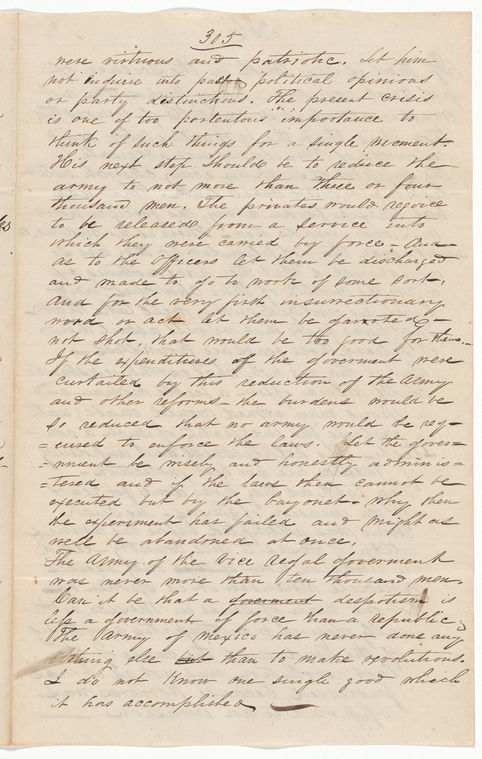 305
were virtuous and patriotic. Let him
not inquire into past political opinions
or party distinctions. The present crisis
is one of too portentous importance to
think of such things for a single moment.
His next step should be to reduce the
army to not more than three or four
thousand men. The privates would rejoice
to be released from a service into
which they were carried by force - And
as to the Officers let them be discharged
and made to go to work of some sort,
and for the very first insurrectionary
word or act let them be garroted -
not shot, that would be too good for them.-
If the expenditures of the goverment were
curtailed by this reduction of the army
and other reforms - the burdens would be
so reduced that no army would be req-
=cured to enforce the laws. Let the gover=
=nment be wisely and honestly adminis=
=tered and if the laws then cannot be
executed but by the bayonet - why then
the experiment has failed and might as
well be abandoned at once.
The army of the vice regal goverment
was never more than ten thousand men.
Can it be that a goverment despotism is
less a government of force than a republic;
The army of Mexico has never done any
thing else but than to make revolutions.
I do not know one single good which
it has accomplished